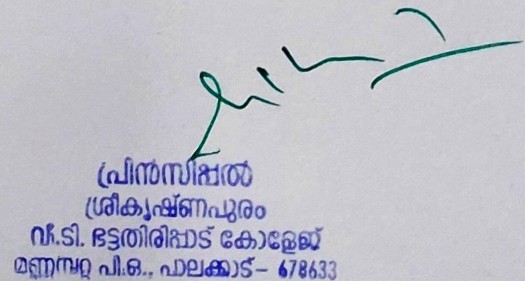 പ്രിൻസിപ്പൽ
ശ്രീകൃഷ്ണപുരം
വി.ടി. ഭട്ടതിരിപ്പാട് കോളേജ്
മണ്ണമ്പറ്റ പി.ഒ., പാലക്കാട് – 678633